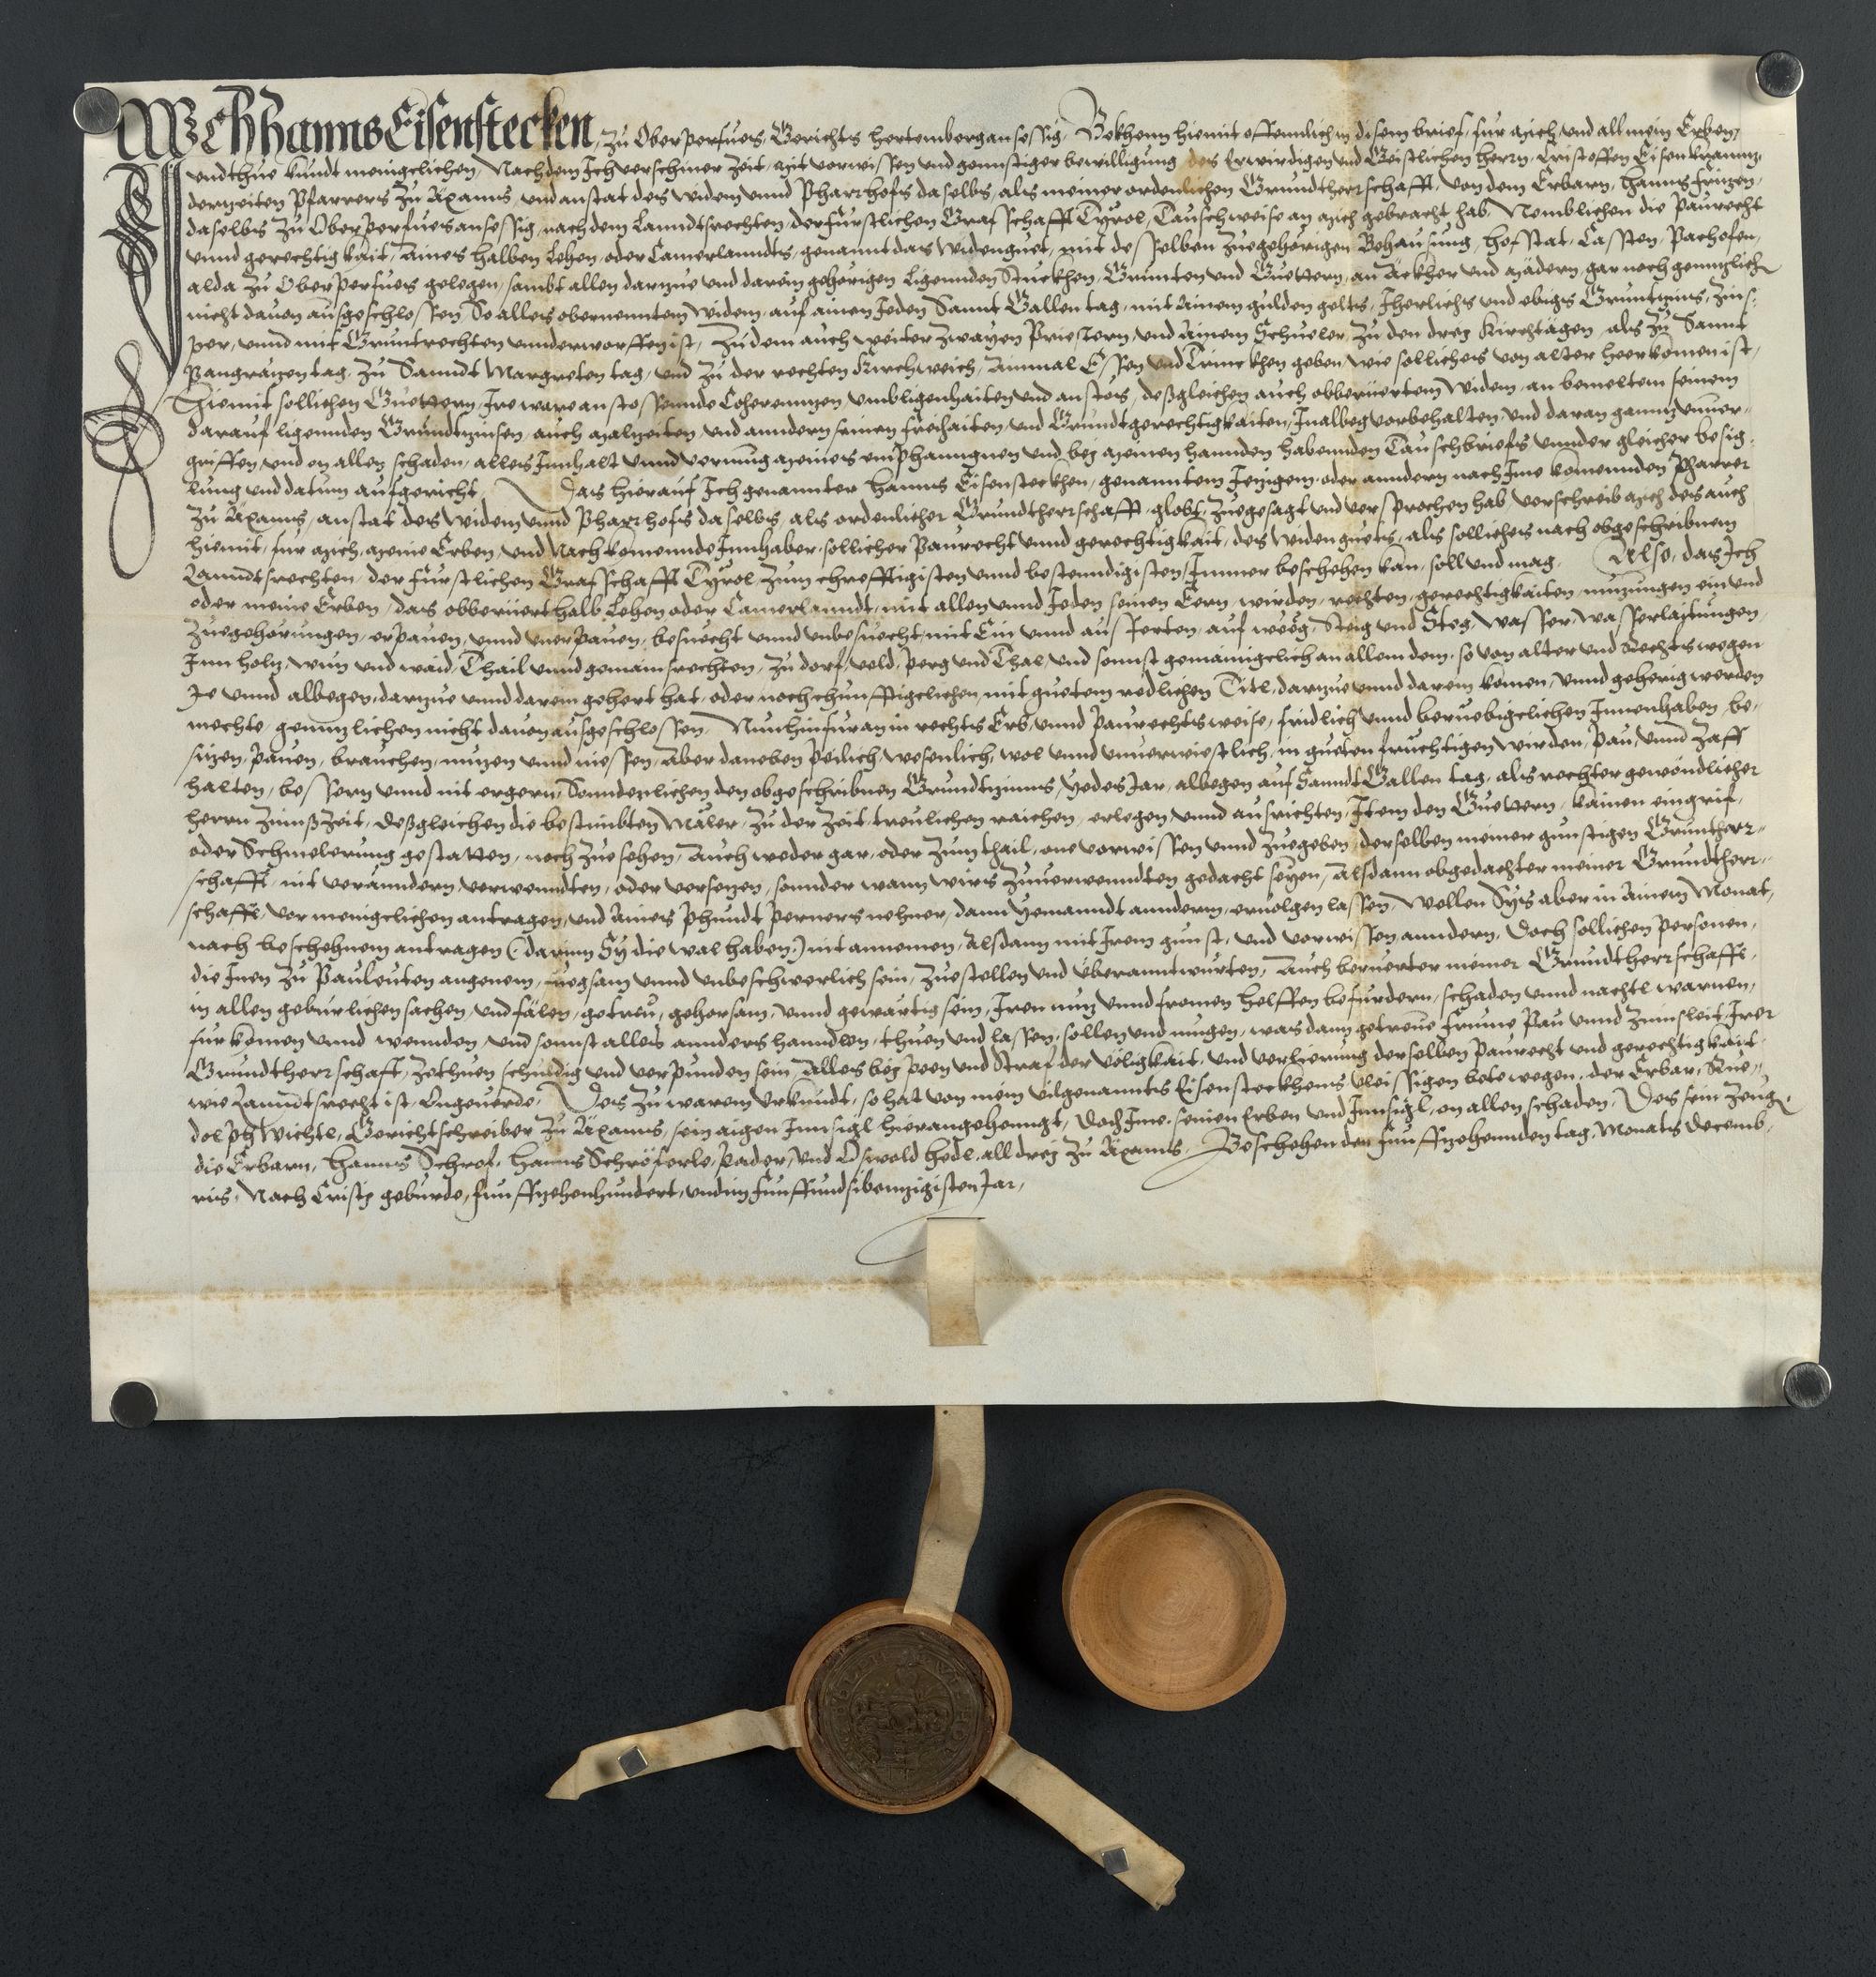 Ich Hanns Eisenstecken, zu Oberperfues, Gerichts Hertemberg ansessig, Bekhenn hiemit offennlich in disem brief, fur mich und all mein Erben,
und thue kundt menigclichen, Nachdem Ich verschiner Zeit, mit vorwissen und gonnstiger bewilligung des Erwirdigen und Geistlichen herrn, Cristoffen Eisenkramm,
derzeiten Pfarrers zu Äxamis, und anstat des Widem unnd Pharrhofs daselbs, als meiner ordenlichen Grundtherrschafft, von dem Erbarn, Hanns
daselbs zu Oberperfues ansessig, nach dem Lanndtsrechten, der furstlichen Grafschafft Tyrol, Tauschweise an mich gebracht hab, Nemblichen die Paurecht
unnd gerechtigkait, Aines halben Lehen, oder Camerlanndts, genannt das Widenguet, mit desselben Zuegehörigen Behausung, hofstat, Cassten, Pachofen,
alda zu Oberperfues gelegen, sambt allen darzue und darein gehorigen Ligennden Stuckhen, Grunten und Guettern, an Äckher und mädern, gar noch genntzlich
nicht davon ausgeschlossen, So alles obernenntem Widem, auf ainen Jeden Sannt Gallen tag, mit Ainem gulden gelts, Jherlichs und ebigs Gruntzins, Zins-
per, unnd mit Gruntrechten unnderworffen ist, Zudem auch weiter Zwayen Priestern, und Ainem Schueler, Zu den drey Kirchtägen, als Zu Sannt
Pangrazen tag, Zu Sanndt Margreten tag, und Zu der rechten Kirchweich, Ainmal Essen und Trinckhen geben, wie sollichs von alter heerkomen ist,
Hiemit sollichen Guettern, Ire ware anstossennde Coherenntzen umbligenhaiten und anstös, deßgleichen auch obberüertem Widem, an bemeltem seinem
darauf ligennden Grundtzinsen, auch malzeiten und anndern seinen freihaiten, und Grundtgerechtigkaiten, In albeg vorbehalten, und daran ganntz unver-
griffen, und on allen schaden, alles Innhalt unnd vermüg meines emphanngnen und bey meinen hannden habennden Tauschbriefs unnder gleicher besig-
lung und datum aufgericht, Das hierauf Ich genannter Hanns Eisensteckhen, genanntem Jezigem, oder anndern nach Ime komennden Pharrer
Zu Äxamis, anstat des Widem unnd Pharrhofs daselbs, als ordenlicher Grundtherrschafft, globt, Zuegesagt und versprochen hab, Verschreib mich des auch
hiemit, fur mich, meine Erben, und Nachkomennde Innhaber, sollicher Paurecht unnd gerechtigkait, des Widenguets, als solliches nach obgeschribnem
Lanndtsrechten, der furstlichen Grafschafft Tyrol, Zum chrefftigisten unnd bestenndigisten, Immer beschehen kan, soll und mag. Also, das Ich
oder meine Erben, das obberüert halb Lehen oder Camerlanndt, mit allen unnd Jeden seinen Eern, wirden, rechten, gerechtigkaiten, nuzungen, ein und
Zuegehörungen, erpauen, unnd unerpauen, besuecht unnd unbesuecht, mit Ein unnd ausferten, auf weeg, Steig und Steg, wasser, wasserlaitungen,
Inn holz, wun und waid, Thail unnd gemainsrechten, Zu dorf, veld, perg und Thal, und sonnst gemainigclich an allem dem, so von alter und Rechts wegen
Je unnd albegen, darzue unnd darein gehört hat, oder noch chunfftigclichen, mit guetem redlichen Titl, darzue unnd darein komen, unnd gehörig werden
mechte, genntzlichen nicht davon ausgeschlossen, Nun hinfuran in rechts Erb, unnd Paurechts weise, fridlich unnd berüebigclichen Innenhaben, be-
sitzen, pauen, brauchen, nuzen unnd niessen, Aber daneben Peilich, wesenlich, wol unnd unverwiestlich, in gueten fruchtigen wirden, Pau, unnd Zaff
halten, bessern unnd nit ergern, Sonnderlichen den obgeschribnen Grundtzinns, yedes Jar, albegen auf Sanndt Gallen tag, als rechter gewondlicher
herrn Zinnßzeit, deßgleichen die bestimbten Mäler, Zu der Zeit, treulichen raichen, erlegen unnd ausrichten, Item den Guettern, kainen eingrif,
oder Schmelerung gestatten, noch Zuesehen, Auch weder gar, oder Zum thail, one vorwissen unnd Zuegeben, derselben meiner gunstigen Grunthere-
schafft, nit veränndern, verwenndten, oder versezen, sonnder wann wirs Zuverwenndten gedacht seyen, Alsdann obgedachter meiner Grundtherr-
schafft, vor menigclichen antragen, und Aines Phundt Perners nehner, dann yemanndt annderm, ervolgen lassen, Wellen Sys aber in Ainem Monat,
nach beschehnem antragen (darinn Sy die wal haben) nit annemen, Alsdann mit Irem gunst, und vorwissen anndern, Doch sollichen personen,
die Inen Zu Pauleuten angenem, fuegsam unnd unbeschwerlich sein, Zuestellen und überanntwurten, Auch berüerter meiner Grundtherrschafft,
in allen gebürlichen sachen, und fälen, getreu, gehorsam, unnd gewärtig sein, Iren nuz unnd fromen helffen befurdern, schaden unnd nachtl warnen,
furkomen unnd wennden, und sonnst alles annders hanndlen, thuen und lassen, sollen und mugen, was dann getreue frume Pau unnd Zinnsleit, Irer
Grundtherrschaft, Zethuen schuldig und verpunden sein, Alles bey peen und straf der völigkait, und verlierung derselben Paurecht und gerechtigkait,
wie Lanndtsrecht ist, Ongeverde, Des Zu warem Urkundt, so hat von mein vilgenannts Eisensteckhens vleissigen bete wegen, der Erbar, Rue-
dolph Wichtl, Gerichtschreiber Zu Äxamis, sein aigen Innsigl hieran gehenngt, doch Ime, seinen Erben und Innsigl, on allen schaden, Des sein Zeug,
die Erbarn, Hanns Schrof, Hanns Schröferle, Pader, und Oswald Hedl, all drey Zu Äxamis, Beschehen den funffzehennden tag, Monats Decemb-
ris, Nach Cristy geburde, funffzehenhundert, und im funffundsibenzigisten Jar,